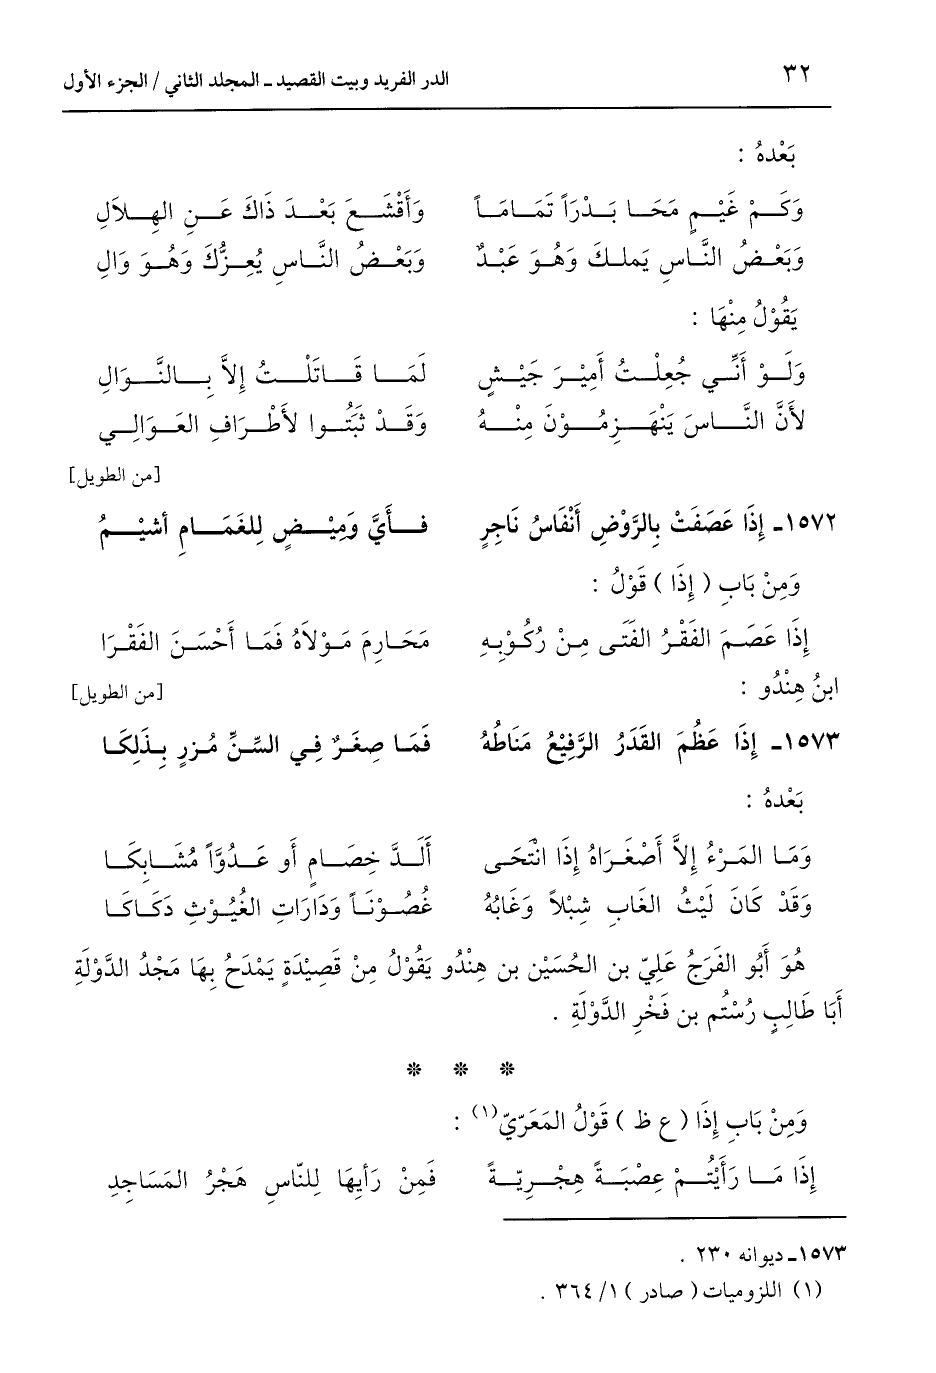 ٣٢ الدر الفريد وبيت القصيد ـ المجلد الثاني / الجزء الأول
بَعْدهُ :
وَكَمْ غَيْمٍ مَحَا بَدْرَاً تَمَامَاً وَأَقْشَعَ بَعْدَ ذَاكَ عَنِ الهِلَالِ
وَبَعْضُ النَّاسِ يَملكَ وَهُوَ عَبْدٌ وَبَعْضُ النَّاسِ يُعِزُّكَ وَهُوَ وَالِ
يَقُوْلُ مِنْهَا :
وَلَوْ أَنِّي جُعِلْتُ أَمِيْرَ جَيْشٍ لَمَا قَاتَلْتُ إِلاَّ بِالنَّوَالِ
لأَنَّ النَّاسَ يَنْهَزِمُوْنَ مِنْهُ وَقَدْ ثَبَتُوا لأَطْرَافِ العَوَالِي
[من الطويل]
١٥٧٢ـ إِذَا عَصَفَتْ بِالرَّوْضِ أَنْفَاسُ نَاجِرٍ فَأَيَّ وَمِيْضٍ لِلغَمَامِ أشيْمُ
وَمِنْ بَابِ ( إِذَا ) قَوْلُ :
إِذَا عَصَمَ الفَقْرُ الفَتَى مِنْ رُكُوْبِهِ مَحَارِمَ مَوْلاَهُ فَمَا أَحْسَنَ الفَقْرَا
ابنُ هِنْدُو : [من الطويل]
١٥٧٣ـ إِذَا عَظُمَ القَدَرُ الرَّفِيْعُ مَنَاطُهُ فَمَا صِغَرٌ فِي السِّنِّ مُزرٍ بِذَلِكَا
بَعْدهُ :
وَمَا المَرْءُ إِلاَّ أَصْغَرَاهُ إِذَا انْتَحَى أَلَدَّ خِصَامٍ أو عَدُوَّاً مُشَابِكَا
وَقَدْ كَانَ لَيْثُ الغَابِ شِبْلاً وَغَابُهُ غُصُوْنَاً وَدَارَاتِ الغُيُوْثِ دَكَاكَا
هُوَ أَبُو الفَرَجُ عَلِيّ بن الحُسَيْن بن هِنْدُو يَقُوْلُ مِنْ قَصِيْدَةٍ يَمْدَحُ بِهَا مَجْدُ الدَّوْلَةِ
أَبَا طَالِبٍ رُسْتُم بن فَخْرِ الدَّوْلَةِ .
* * *
وَمِنْ بَابِ إِذَا ( ع ظ ) قَوْلُ المَعَرّيّ(١) :
إِذَا مَا رَأَيْتُمْ عِصْبَةً هِجْرِيّةً فَمِنْ رَأيهَا لِلنّاسِ هَجْرُ المَسَاجِدِ
١٥٧٣ـ ديوانه ٢٣٠ .
(١) اللزوميات ( صادر ) ١/ ٣٦٤ .